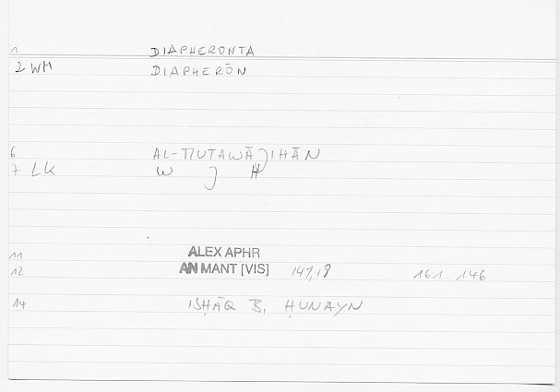 1 DIAPHERONTA
2 WM DIAPHERŌN
6 AL-MUTAWĀJIHĀN
7 LK W J H
11 ALEX APHR
12 AN MANT [VIS] 147,18 161. 146
14 ISḤĀQ B. ḤUNAYN